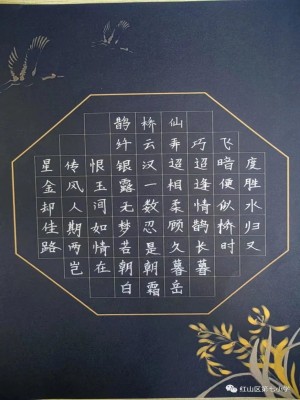 鹊桥仙
纤云弄巧飞
星传恨银汉迢迢暗度
金风玉露一相逢便胜
却人间无数柔情似水
佳期如梦忍顾鹊桥归
路两情若是久长时又
岂在朝朝暮暮
白霜岳
红山区第七小学